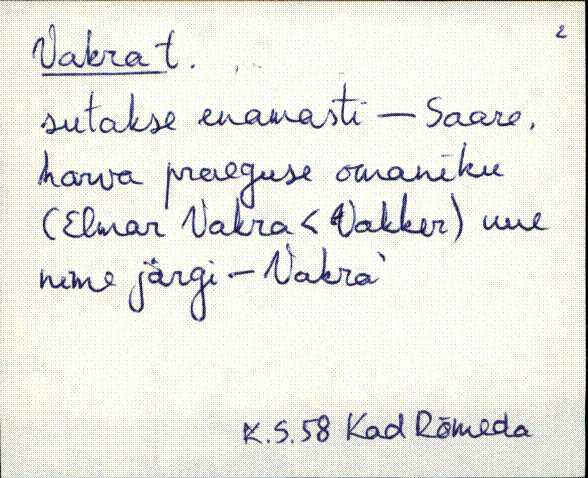 2
Vakra t.
sutakse enamasti – Saare,
harva praeguse omaniku
(Elmar Vakra < Vakker) uue
nime järgi – Vakra`
K.S.58 Kad Rõmeda